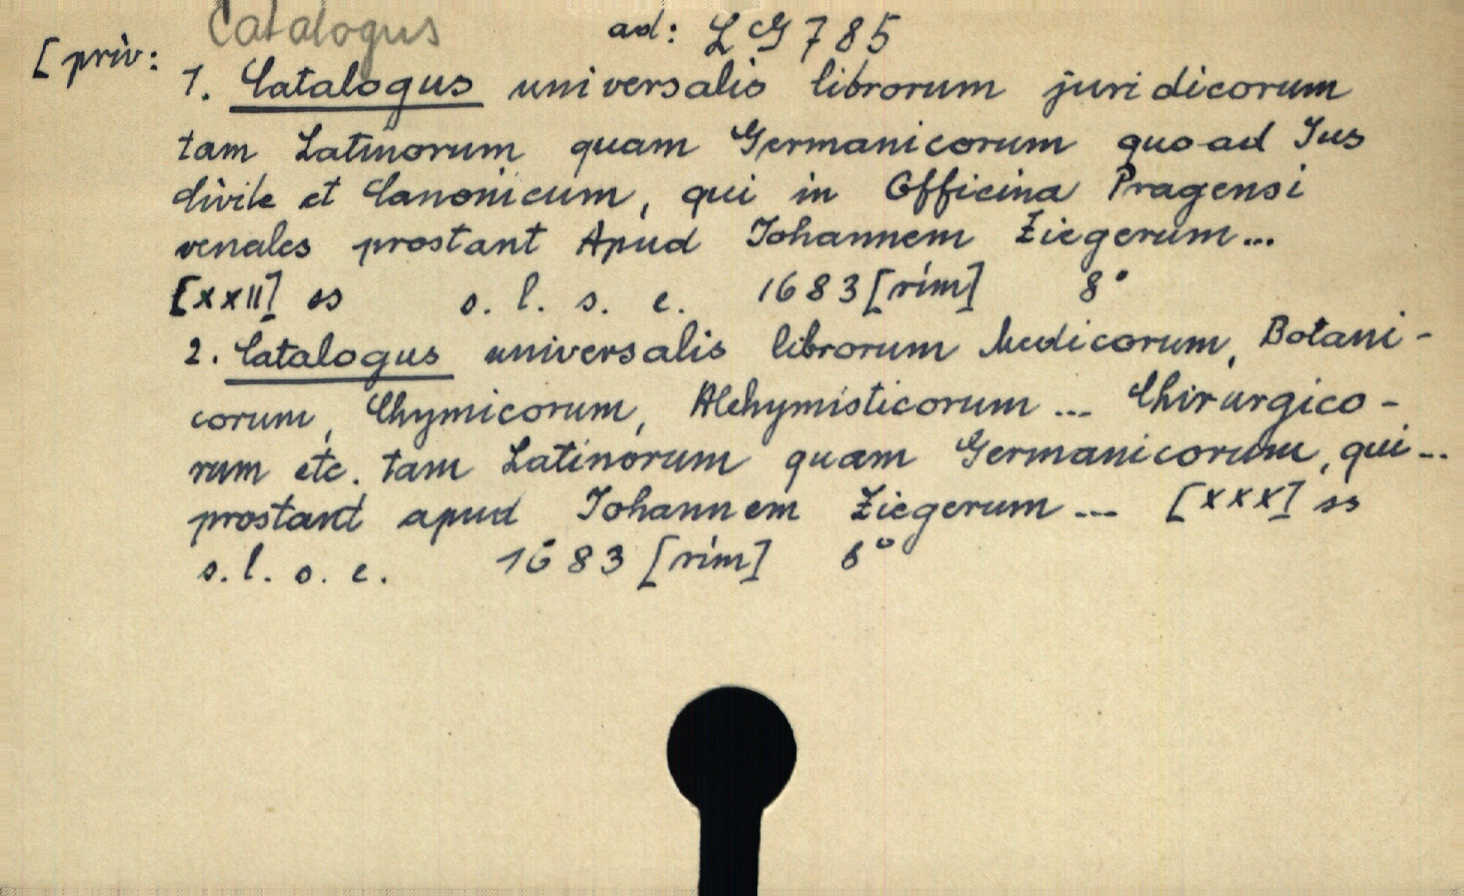 Catalogus
ad: LG 785
[priv:
1. Catalogus universalis librorum juridicorum
tam Latinorum quam Germanicorum quo ad Ius
Civile et Canonicum, qui in Officina Pragensi
venales prostant Apud Iohannem Ziegerum...
[XXII] ss s. l. s. e. 1683 [rím] 8°
2. Catalogus universalis librorum Medicorum, Botani-
corum, Chymicorum, Alchymisticorum ... Chirurgico-
rum etc. tam Latinorum quam Germanicorum, qui...
prostant apud Iohannem Ziegerum ... [XXX] ss
s. l. s. e. 1683 [rím] 8°